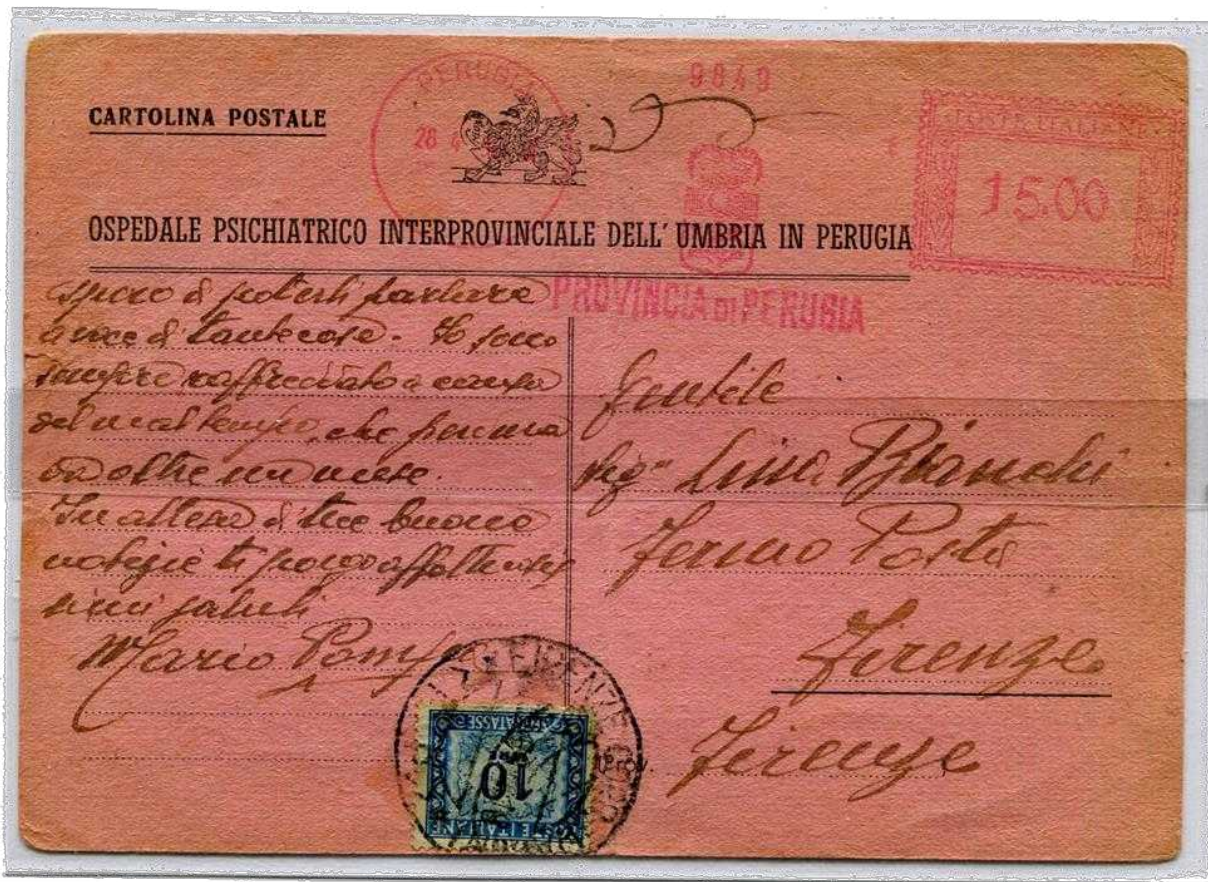 CARTOLINA POSTALE
PERUGIA
28 4
9849
POSTE ITALIANE
15.00
OSPEDALE PSICHIATRICO INTERPROVINCIALE DELL' UMBRIA IN PERUGIA
PROVINCIA DI PERUGIA
spero di poterti parlare
a voce di tante cose. Io sono
sempre raffreddato a causa
del mal tempo, che
da oltre un mese.
In attesa di tue buone
notizie ti porgo affettuosis
simi saluti
Mario
Gentile
Sig.na Lina Bianchi
Fermo Posta
Firenze
Firenze
FIRENZE
SEGNATASSE
10
POSTE ITALIANE